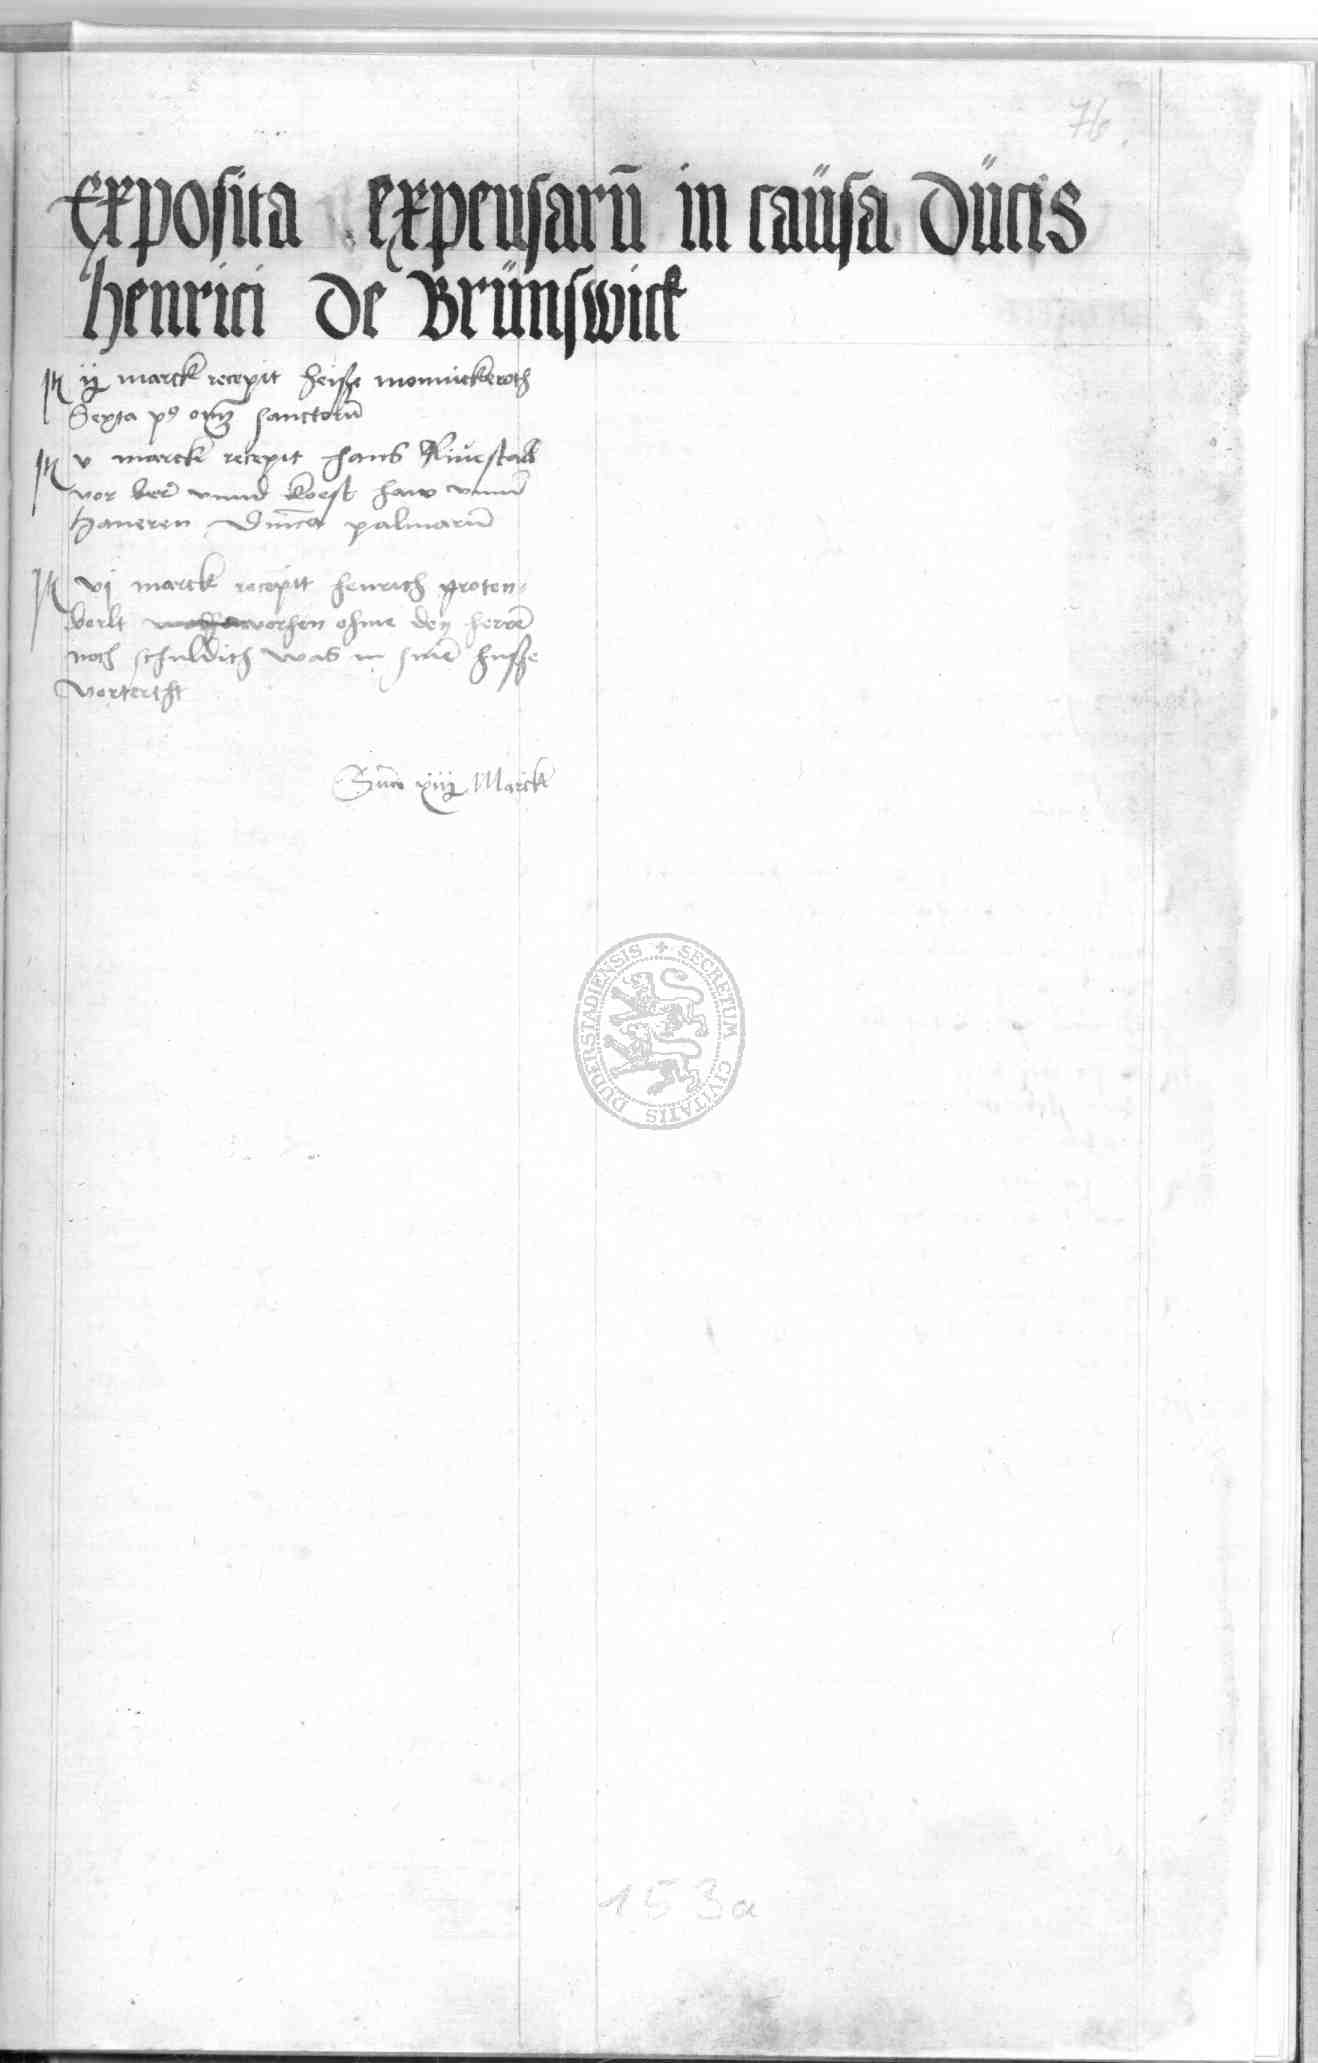 76
Exposita expensarū in caüsa dücis
henrici de Brünswick
It ij marck recepit heise monnickeroth
Sexta pꝰ om̄ sanctorū
It v marck recepit hans
vor ber vnnd koest haw vnnd
haueren Dnīca palmarū
It vj marck recepit henrich groten-
vorhen ohme dey herrē
noch schuldich was in sinē husse
vortertht
Sūa xiij Marck
SECRETUM CIVITATIS DUDERSTADIENSIS
153a